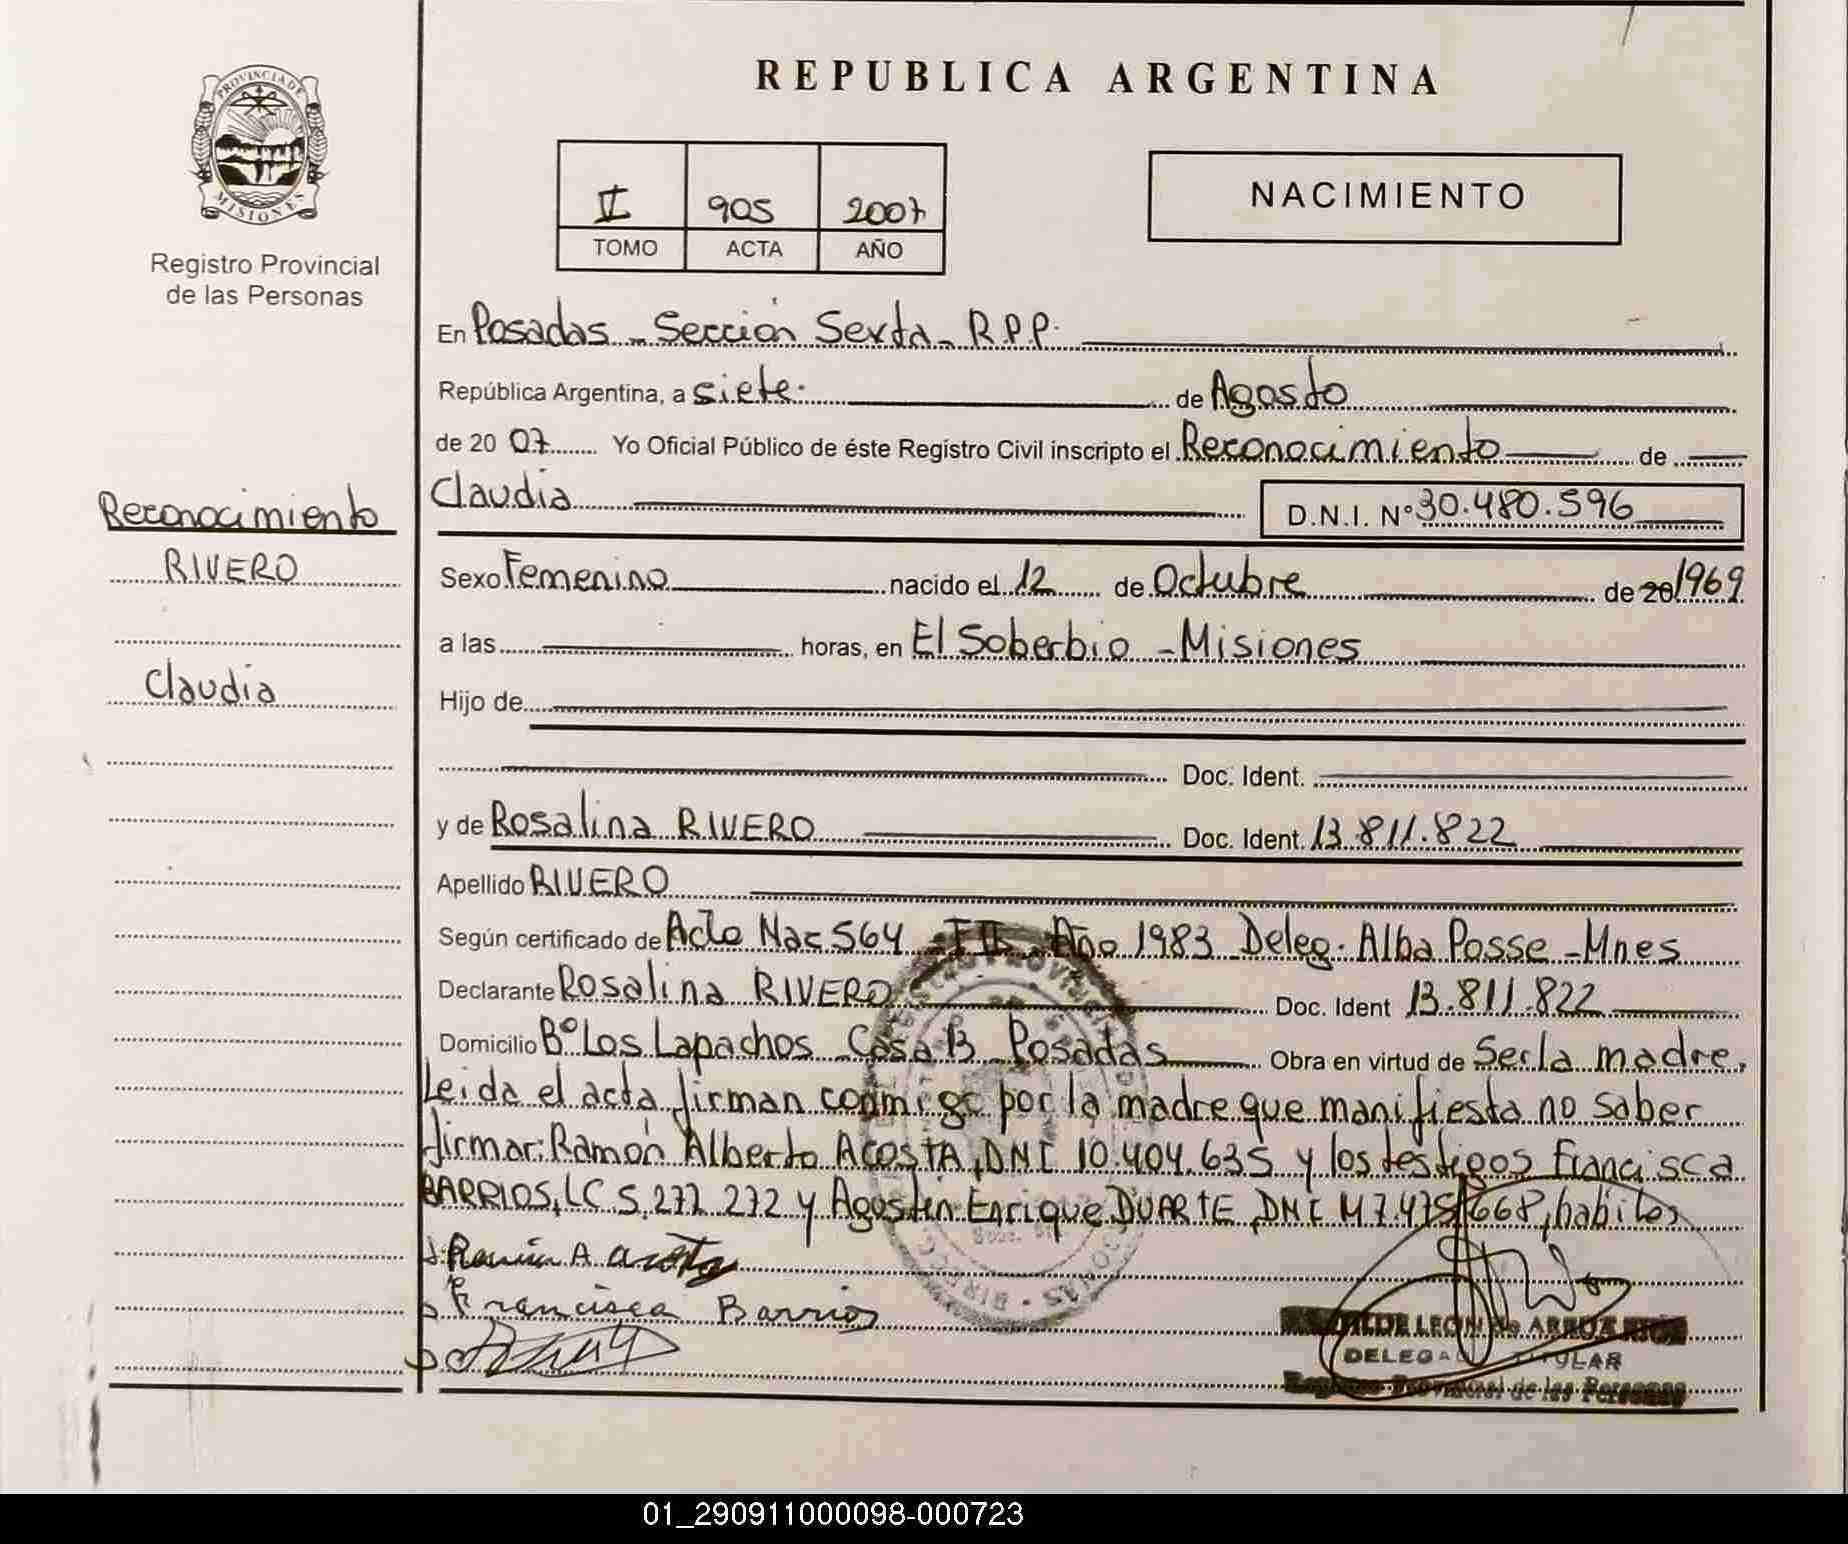 REPUBLICA ARGENTINA
PROVINCIA DE
MISIONES
Registro Provincial
de las Personas
II 905 2007
TOMO ACTA AÑO
NACIMIENTO
En Posadas - Sección Sexta - R.P.P.
República Argentina, a siete. de Agosto
de 20 07 Yo Oficial Público de éste Registro Civil inscripto el Reconocimiento de
Claudia D.N.I. N° 30.480.596
Reconocimiento
RIVERO
Claudia
Sexo Femenino nacido el 12 de Octubre de 20 1969
a las horas, en El Soberbio - Misiones
Hijo de
Doc. Ident.
y de Rosalina RIVERO Doc. Ident. 13.811.822
Apellido RIVERO
Según certificado de Acta Nac 564 - T II - Año 1983 Deleg. Alba Posse - Mnes
Declarante Rosalina RIVERO Doc. Ident 13.811.822
Domicilio B° Los Lapachos Casa 13 Posadas Obra en virtud de Ser la madre.
Leida el acta firman conmigo por la madre que manifiesta no saber
firmar: Ramón Alberto ACOSTA, DNI 10.404.635 y los testigos Francisca
BARRIOS, LC 5.272.272 y Agustín Enrique DUARTE, DNI M 7.475.668, habiles
Ramón A. Acosta
Francisca Barrios
DE LEON de
DELEGADO TITULAR
Registro Provincial de las Personas
01_290911000098-000723